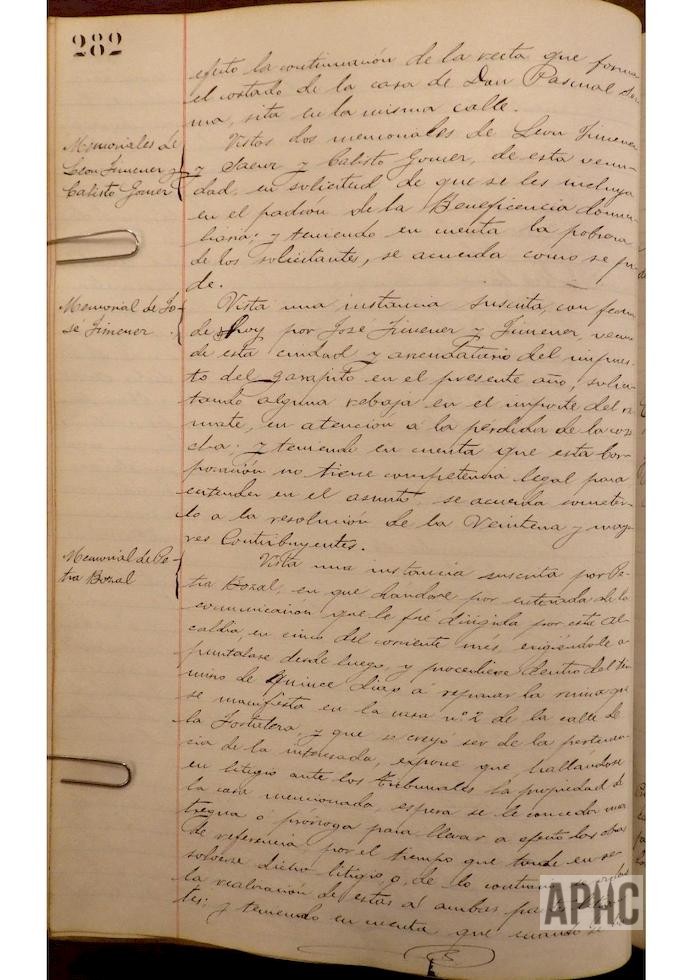 282
efecto la continuación de la recta que forma
el costado de la casa de Don Pascual
ma, sita en la misma calle.
Memoriales de
Leon Jimenez y
Calisto Gomez
Vistos dos memoriales de Leon Jimenez
y Saenz y Calisto Gomez, de esta vecin-
dad, en solicitud de que se les incluya
en el padrón de la Beneficencia domici-
liaria; y teniendo en cuenta la pobreza
de los solicitantes, se acuerda como se pi-
de.
Memorial de Jo-
sé Jimenez
Vista una instancia suscrita, con fecha
de hoy por José Jimenez y Jimenez, vecino
de esta ciudad y arrendatario del impues-
to del garapito en el presente año, solici-
tando alguna rebaja en el importe del re-
mate, en atención á la pérdida de la cose-
cha; y teniendo en cuenta que esta Cor-
poración no tiene competencia legal para
entender en el asunto, se acuerda someter-
lo a la resolución de la Veintena y mayo-
res Contribuyentes.
Memorial de Pe-
tra Bozal
Vista una instancia suscrita por Pe-
tra Bozal, en que dándose por enterada de la
comunicación que le fué dirigida por esta Al-
caldía, en cinco del corriente mes, exigiéndole a
puntalase desde luego, y procediese dentro del tér-
mino de quince días á reparar la ruina que
se manifiesta en la casa nº 2 de la calle de
la y que se creyó ser de la pertenen-
cia de la interesada, expone que hallándose
en litigio ante los tribunales la propiedad de
la casa mencionada, espera se le conceda una
tregua ó prórroga para llevar a efecto las obras
de referencia, por el tiempo que tarde en re-
solverse dicho litigio o, de lo contrario
la realización de estas á ambas
tes; y teniendo en cuenta que cuando
APHC